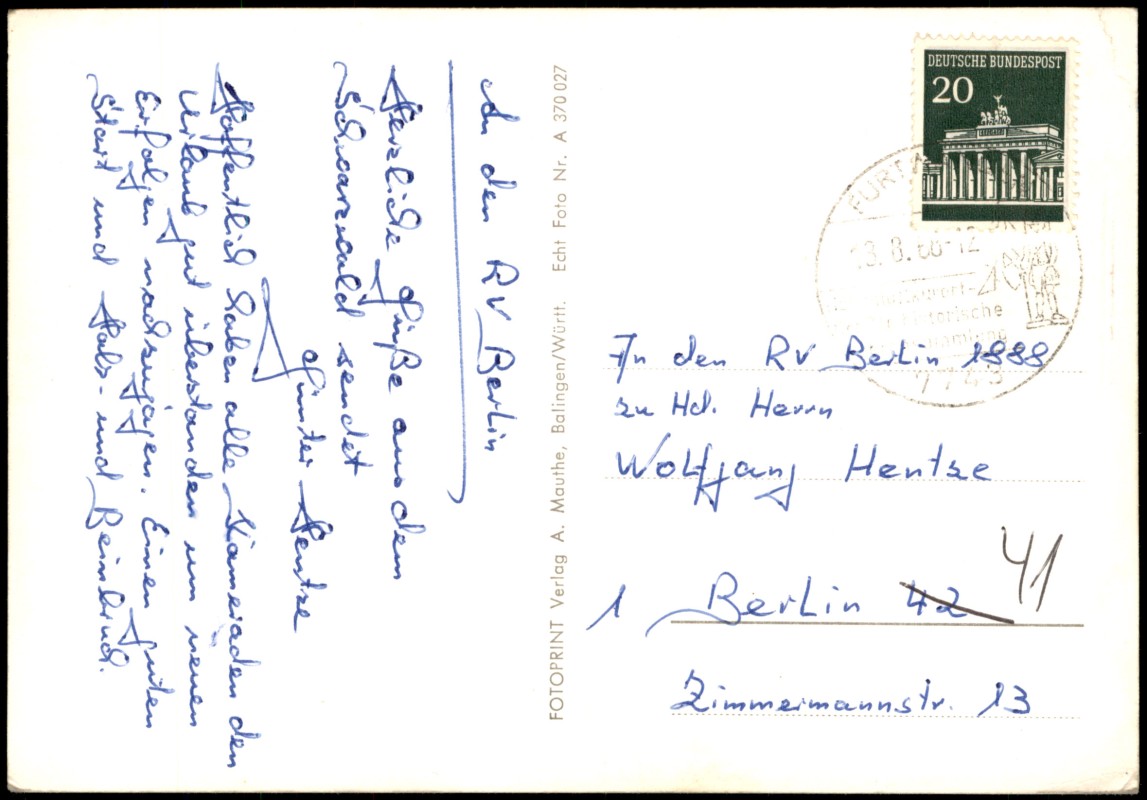 An den RV Berlin
Herzliche Grüße aus dem
Schwarzwald sendet
Günter Hentze
Hoffentlich haben alle Kameraden den
Urlaub gut überstanden um neuen
Erfolgen nachzujagen. Einen guten
Start und Hals- und Beinbruch.
FOTOPRINT Verlag A. Mauthe, Balingen/Württ. Echt Foto Nr. A 370 027
DEUTSCHE BUNDESPOST
20
FURT
13.8.68-12
historische
sammlung
7743
An den RV Berlin 1888
zu Hd. Herrn
Wolfgang Hentze
1 Berlin 42 41
Zimmermannstr. 13